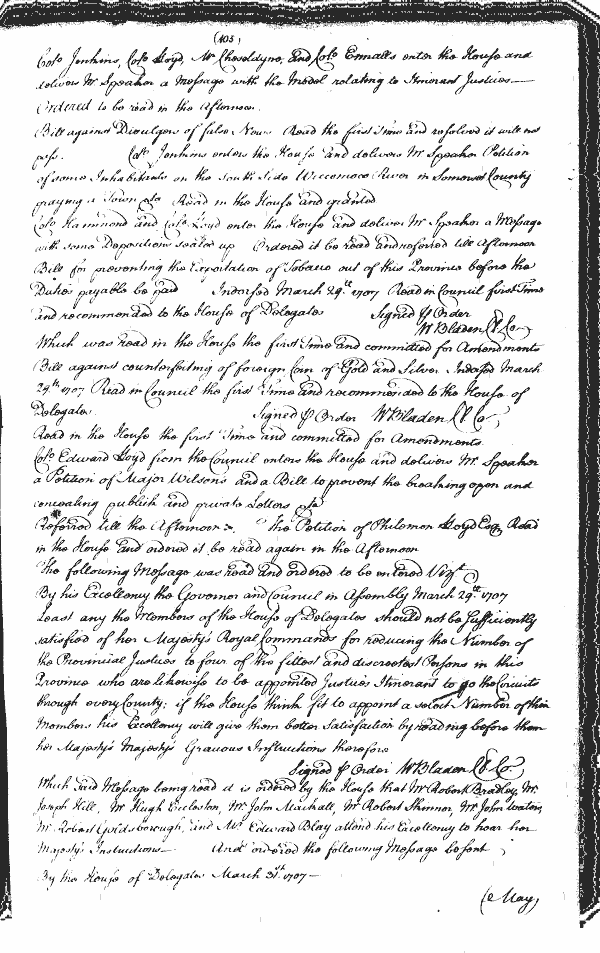 (403)
Colo. Jenkins, Colo. Lloyd, Mr. Cheseldyne, and Colo. Ennalls enter the House and
delivers Mr. Speaker a Message with the Model relating to Itinerant Justices
Ordered to be read in the Afternoon.
Bill against Divulgers of false News Read the first Time and resolved it will not
pass. Colo. Jenkins enters the House and delivers Mr Speaker Petition
of some Inhabitants on the South Side Wiccomaco River in Somerset County
praying a Town &ca Read in the House and granted
Colo. Hammond and Colo. Lloyd enter the House and deliver Mr Speaker a Message
with some Depositions sealed up Ordered it be read and referred till Afternoon
Bill for preventing the Exportation of Tobacco out of this Province before the
Duties payable be paid Indorsed March 29th. 1707 Read in Council first Time
and recommended to the House of Delegates Signed p Order
W Bladen Cl Co
Which was read in the House the first Time and committed for Amendments
Bill against counterfeiting of foreign Coin of Gold and Silver Indorsed March
29th. 1707 Read in Council the first Time and recommended to the House of
Delegates Signed p Order W Bladen Cl Co
Read in the House the first Time and committed for Amendments
Colo. Edward Lloyd from the Council enters the House and delivers Mr. Speaker
a Petition of Major Wilson's and a Bill to prevent the breaking open and
concealing publick and private Letters &ca
Referred till the Afternoon The Petition of Philemon Lloyd Esqr. Read
in the House and ordered it be read again in the Afternoon
The following Message was read and ordered to be entered Vizt.
By his Excellency the Governor and Council in Assembly March 29th 1707
Least any the Members of the House of Delegates should not be sufficiently
satisfied of her Majesty's Royal Commands for reducing the Number of
the Provincial Justices to four of the fittest and discreetest Persons in this
Province who are likewise to be appointed Justices Itinerant to go the Circuits
through every County; if the House think fit to appoint a select Number of their
Members his Excellency will give them better Satisfaction by reading before them
her Majesty's Majesty's Gracious Instructions therefore
Signed p Order W Bladen Cl Co.
Which said Message being read it is ordered by the House that Mr Robert Bradley, Mr.
Joseph Hill, Mr Hugh Eccleston, Mr. John Mackall, Mr Robert Skinner Mr John Waters,
Mr. Robert Goldsborough, and Mr. Edward Blay attend his Excellency to hear her
Majesty's Instructions And ordered the following Message be sent
By the House of Delegates March 31st. 1707
May